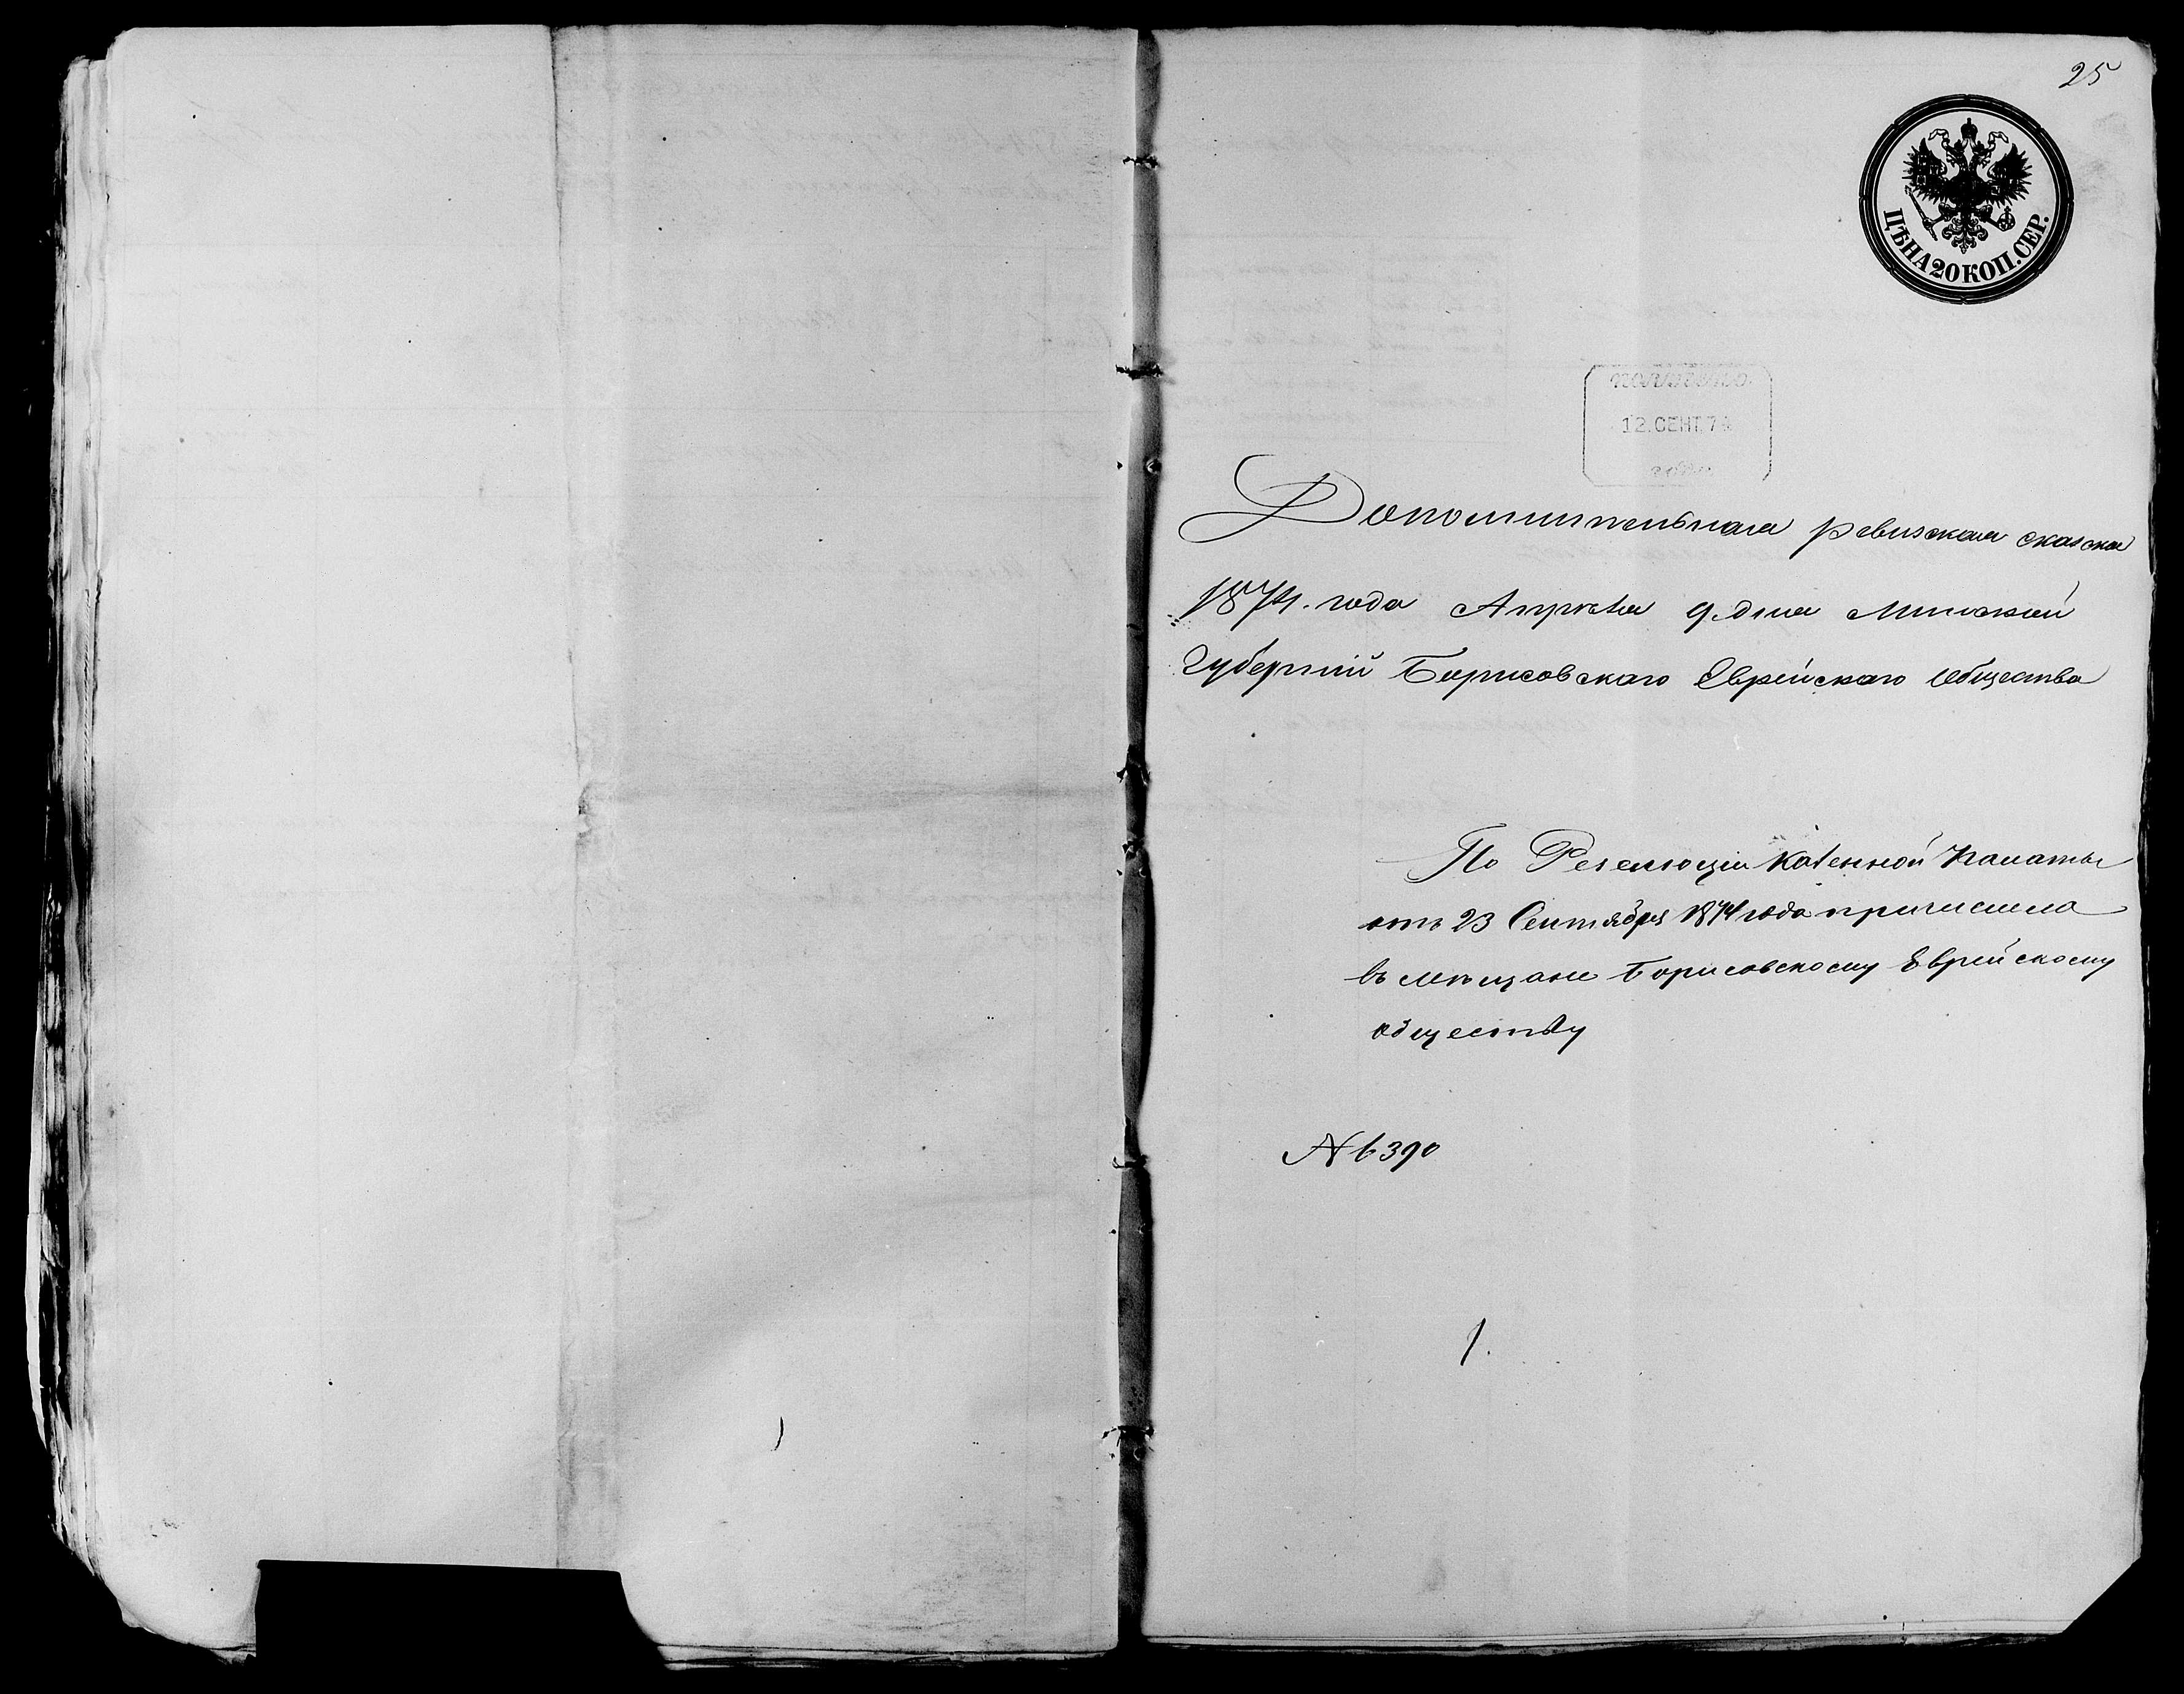 25
ЦѢНА 20 КОП. СЕР.
ПОЛУЧЕНО
12.СЕНТ.74
Дополнительная ревизская сказка
1874. года Апрѣля 9. дня Минской
Губерніи Борисовскаго Еврейскаго Общества
По Резолюціи Казенной Палаты
отъ 23 Сентября 1874 года причислена
въ мѣщане Борисовскому Еврейскому
обществу
№ 6390
1.